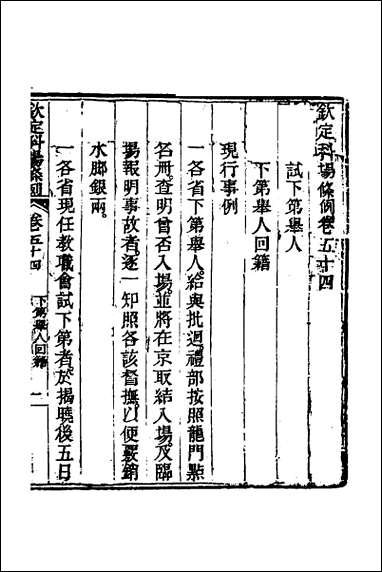 欽定科場條例卷五十四
試下第舉人
下第舉人回籍
現行事例
一各省下第舉人給與批迴禮部按照龍門點
名冊查明曾否入場並將在京取結入場及臨
場報明事故者逐一知照各該督撫以便覈銷
水腳銀兩
一各省現任教職會試下第者於揭曉後五日
欽定科場條例 卷五十四 下第舉人回籍 一